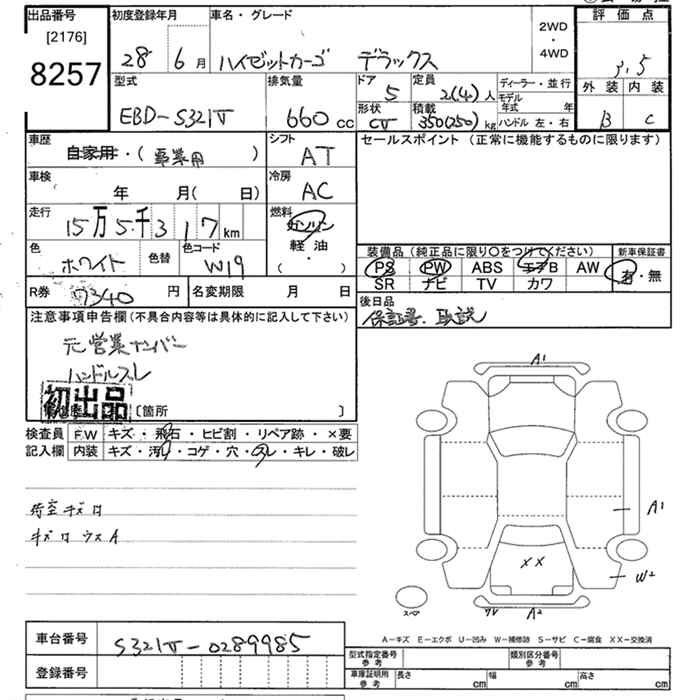 出品番号
[2176]
8257
初度登録年月
28 6月
車名・グレード
ハイゼットカーゴ デラックス
2WD
・
4WD
評価点
3.5
外装 内装
B C
型式
EBD-S321V
排気量
660 cc
ドア
5
定員
2(4)人
形状
CV
積載
350(250)kg
ディーラー・並行
モデル
年式 年
ハンドル 左・右
車歴
自家用・(事業用)
シフト
AT
セールスポイント (正常に機能するものに限ります)
車検
年 月( 日)
冷房
AC
走行
15万5千317km
燃料
ガソリン
軽油
( ・ )
色
ホワイト
色替
色コード
W19
装備品 (純正品に限り○をつけてください)
PS PW ABS エアB AW
SR ナビ TV カワ
新車保証書
有・無
R券
7340円
名変期限 月 日
後日品
保証書、取説
注意事項申告欄 (不具合内容等は具体的に記入して下さい)
元営業ナンバー
ハンドルスレ
初出品
〔箇所 〕
検査員
記入欄
FW キズ・飛石・ヒビ割・リペア跡・×要
内装 キズ・汚れ・コゲ・穴・スレ・キレ・破レ
荷室キズ
キズ ウスA
A1
A1
××
W2
スペア
A2
A-キズ E-エクボ U-凹み W-補修跡 S-サビ C-腐食 XX-交換済
車台番号
S321V-0289985
登録番号
型式指定番号
参考
類別区分番号
参考
車庫証明用
参考
長さ cm 幅 cm 高さ cm